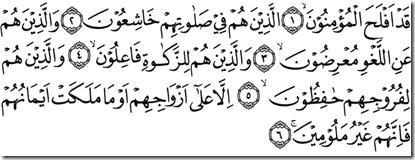 قَدْ اَفْلَحَ الْمُؤْمِنُوْنَۙ ﴿١﴾ الَّذِيْنَ هُمْ فِيْ صَلٰوتِهِمْ خَاشِعُوْنَ ﴿٢﴾ وَالَّذِيْنَ هُمْ
عَنِ اللَّغْوِ مُعْرِضُوْنَۙ ﴿٣﴾ وَالَّذِيْنَ هُمْ لِلزَّكٰوةِ فَاعِلُوْنَۙ ﴿٤﴾ وَالَّذِيْنَ هُمْ
لِفُرُوْجِهِمْ حٰفِظُوْنَۙ ﴿٥﴾ اِلَّا عَلٰٓى اَزْوَاجِهِمْ اَوْ مَا مَلَكَتْ اَيْمَانُهُمْ
فَاِنَّهُمْ غَيْرُ مَلُوْمِيْنَۚ ﴿٦﴾